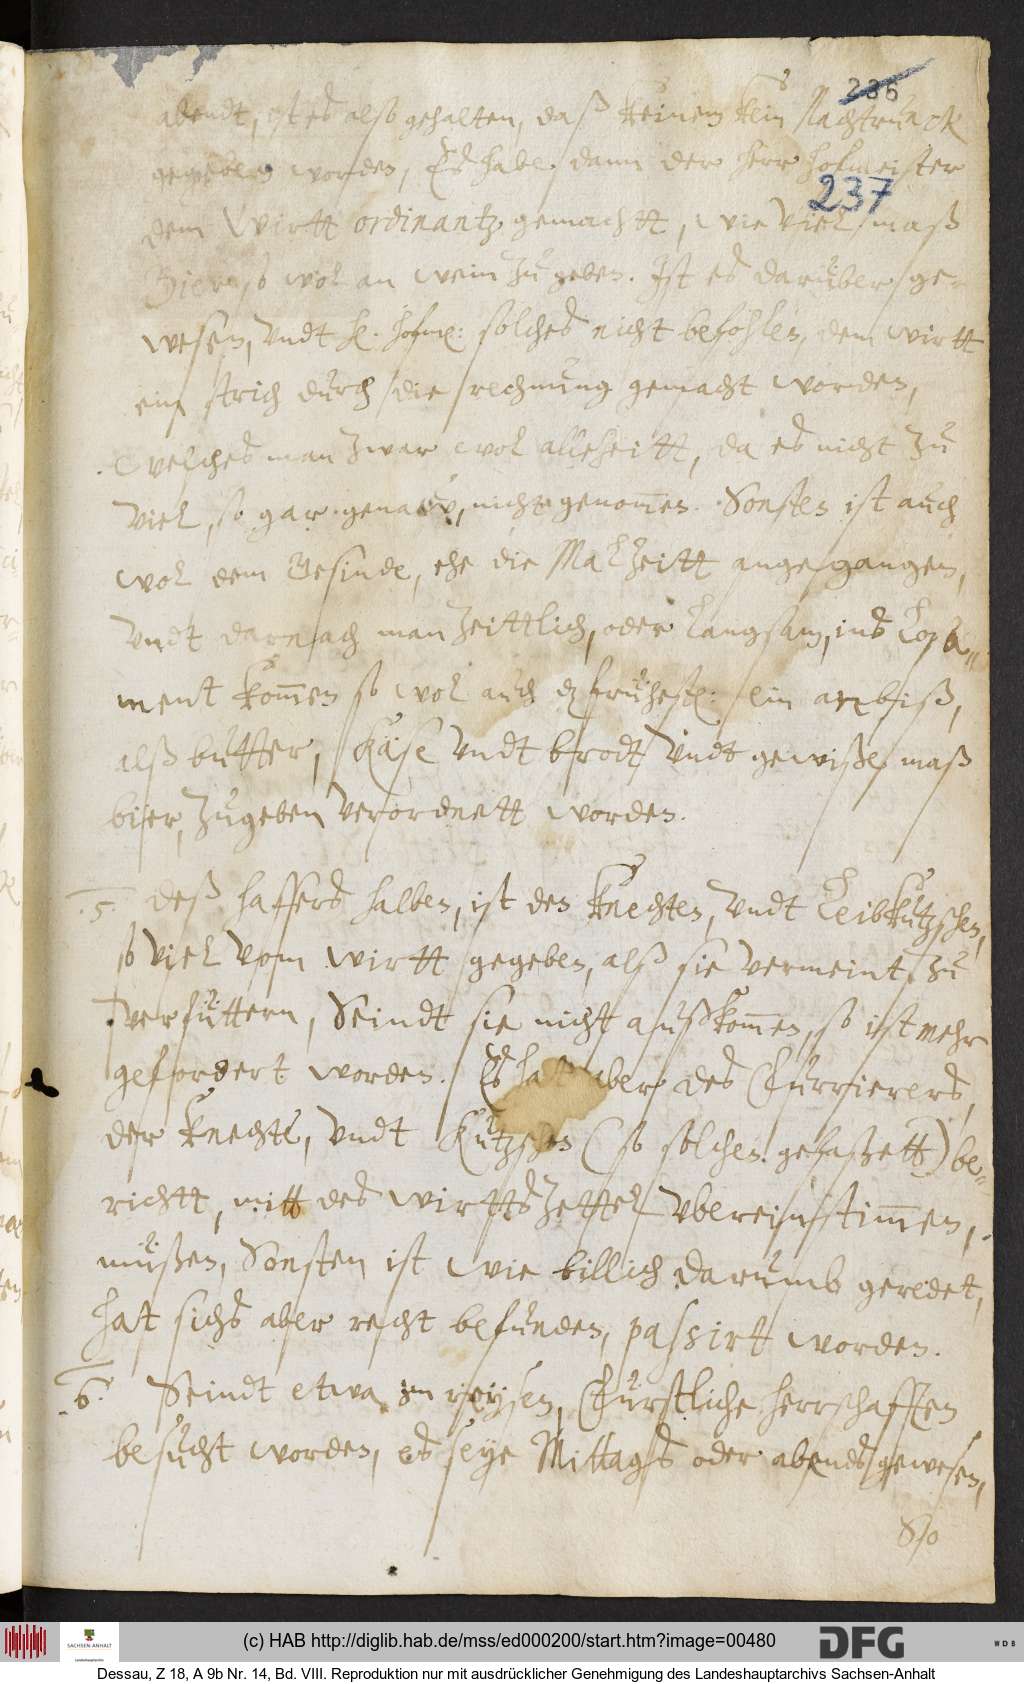 236
abendt, ist es also gehalten, daß keinem kein Nachtrunck
gegeben worden, Es habe dann der herr hofmeister
237
dem Wirtt ordinantz gemachtt, wie viel maß
Bier, so wol an wein zu geben. Ist es darüber ge-
wesen, vndt h. hofm: solches nicht befohlen, dem wirtt
ein strich durch die rechnung gemacht worden,
welches man zwar wol alleseitt, da es nicht zu
viel, so gar genaw, nicht genom̄en. Sonsten ist auch
wol dem Gesinde, ehe die Malzeitt angegangen,
vndt darnach man zeittlich, oder langsam, ins Losa=
ment kom̄en so wol auch ein anbiß,
alß butter, Käse vndt brodt, vndt gewiße maß
bier, zugeben verordnett worden.
5. deß haffers halben, ist den knechten, vndt Leibkutzschen,
so viel vom wirtt gegeben, alß sie vermeint, zu
verfüttern, Seindt sie nicht außkom̄en, so ist mehr
gefordert worden. Es hat aber des Furrierers,
der knechte, vndt Kutzschen (so solchen gefaßett) be=
richtt, mitt des wirtts Zettel vbereinstim̄en,
müßen, Sonsten ist wie billich darumb geredet,
hat sichs aber recht befunden, passirtt worden.
6. Seindt etwa im reysen, Fürstliche herrschafften
besucht worden, es seye Mittags oder abends gewesen,
So
(c) HAB http://diglib.hab.de/mss/ed000200/start.htm?image=00480
SACHSEN-ANHALT
DFG
WDB
Dessau, Z 18, A 9b Nr. 14, Bd. VIII. Reproduktion nur mit ausdrücklicher Genehmigung des Landeshauptarchivs Sachsen-Anhalt